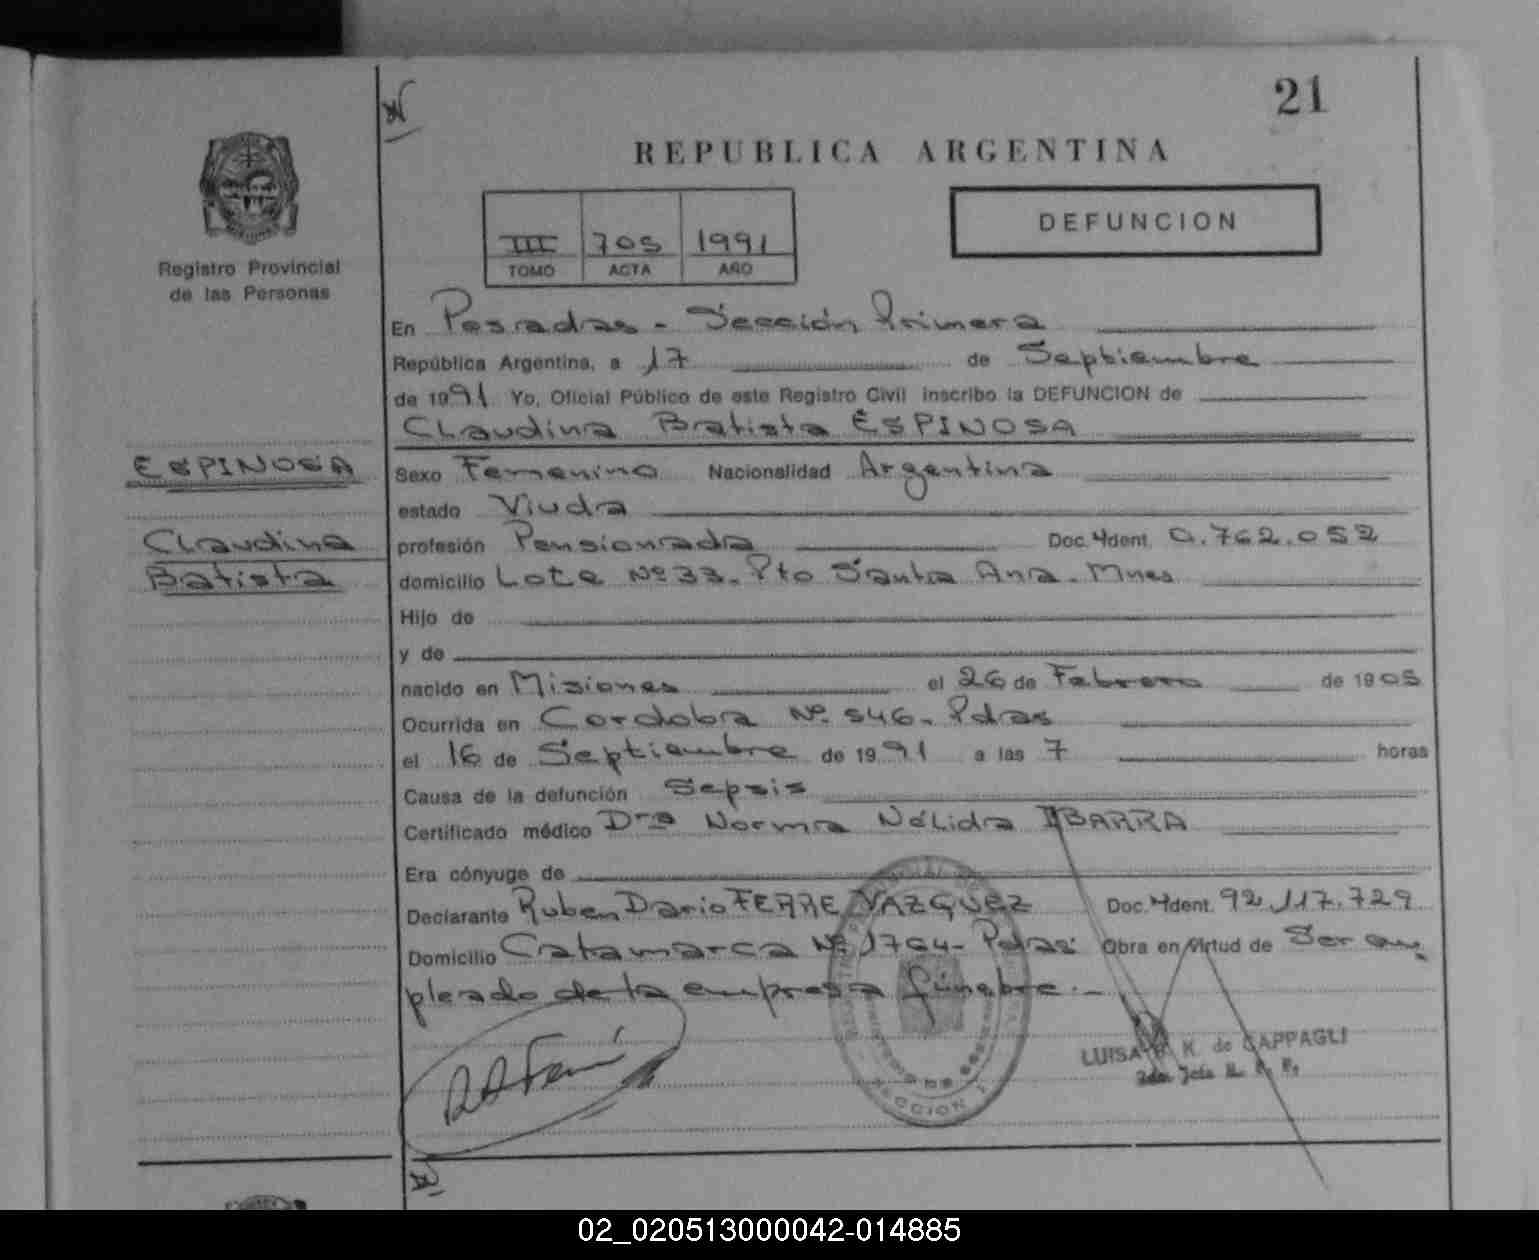 21
REPUBLICA ARGENTINA
Registro Provincial
de las Personas
III 705 1991
TOMO ACTA AÑO
DEFUNCION
En Posadas - Sección Primera
República Argentina, a 17 de Septiembre
de 1991 Yo, Oficial Público de este Registro Civil inscribo la DEFUNCION de
Claudina Batista ESPINOSA
ESPINOSA
Claudina
Batista
Sexo Femenino Nacionalidad Argentina
estado Viuda
profesión Pensionada Doc. Ident. 0.762.052
domicilio Lote Nº 33. Pto Santa Ana. Mnes
Hijo de
y de
nacido en Misiones el 26 de Febrero de 1905
Ocurrida en Cordoba Nº 546. Pdas
el 16 de Septiembre de 1991 a las 7 horas
Causa de la defunción Sepsis
Certificado médico Dra Norma Nélida IBARRA
Era cónyuge de
Declarante Ruben Dario FERRE VAZQUEZ Doc. Ident. 92.117.729
Domicilio Catamarca Nº 1764- Pdas Obra en virtud de Ser em
pleado de la empresa fúnebre.-
LUISA K. de CAPPAGLI
SECCION 1
02_020513000042-014885